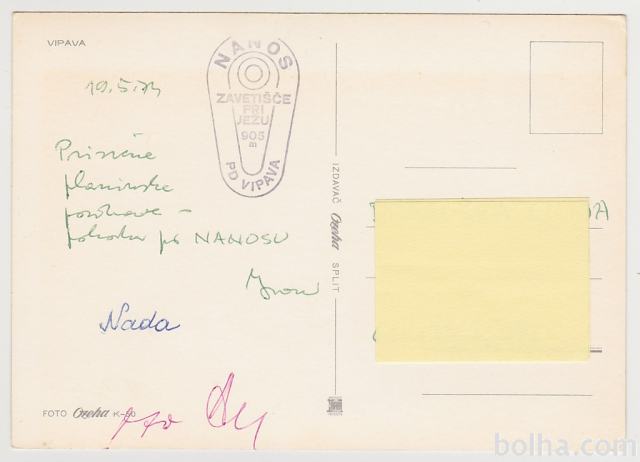 VIPAVA
NANOS
ZAVETIŠČE
PRI
JEZU
905
m
PD VIPAVA
Prisrčne
planinske
pozdrave –
pohodu po NANOSU
Nada
FOTO Ozeha K-50
IZDAVAČ Ozeha SPLIT
bolha.com